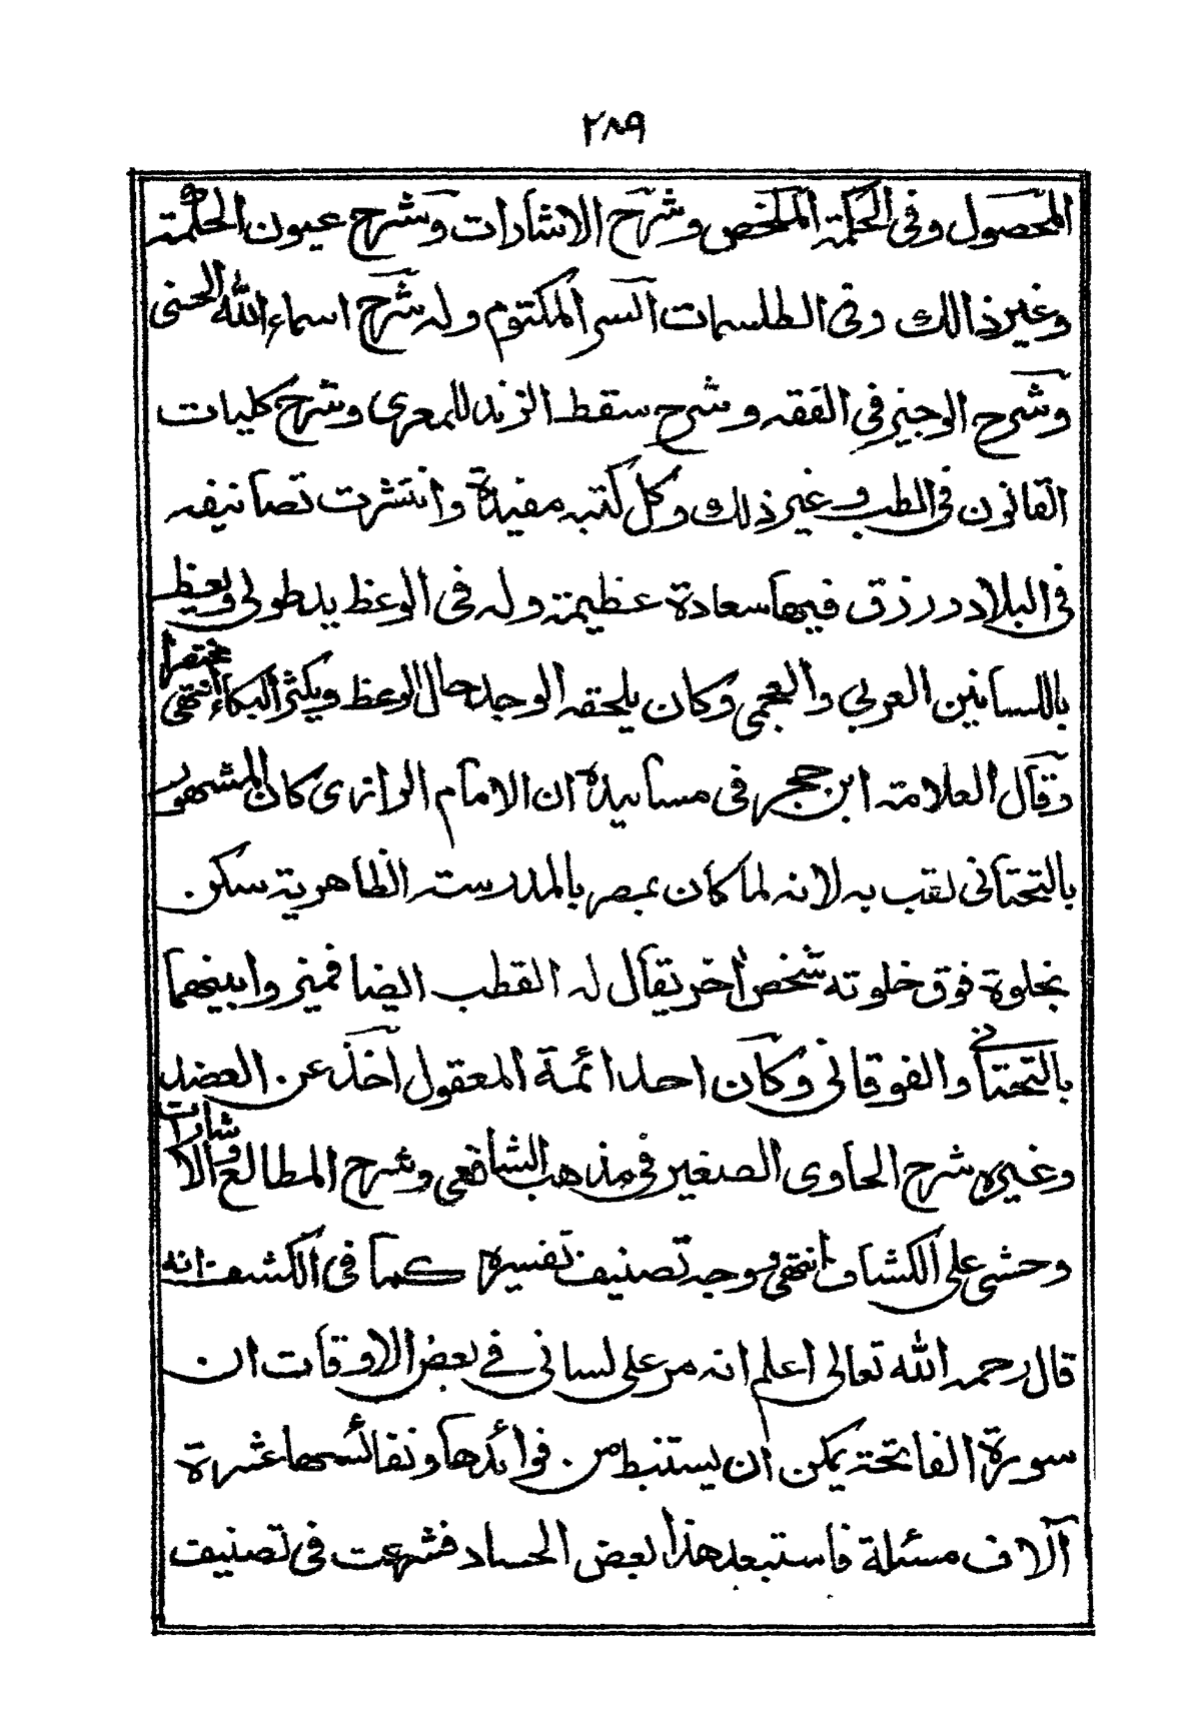 ٢٨٩
المحصول وفى الحكمة الملخص وشرح الاشارات وشرح عيون الحكمة
وغير ذالك وفى الطلسمات السر المكتوم وله شرح اسماء الله الحسنى
وشرح الوجيز فى الفقه وشرح سقط الزند للمعرى وشرح كليات
القانون فى الطب وغير ذلك وكل كتبه مفيدة وانتشرت تصانيفه
فى البلاد ورزق فيها سعادة عظيمة وله فى الوعظ يد طولى ويعظ
باللسانين العربي والعجمي وكان يلحقه الوجد حال الوعظ ويكثر البكاء انتهى مختصرا
وقال العلامة ابن حجر فى مسانيده ان الامام الرازى كان المشهور
بالتحتانى لقب به لانه لما كان بمصر بالمدرسة الظاهرية سكن
بخلوة فوق خلوته شخص أخر يقال له القطب ايضا فميزوا بينهما
بالتحتانى والفوقانى وكان احد ائمة المعقول اخذ عن العضد
وغيره شرح الحاوى الصغير فى مذهب الشافعى وشرح المطالع والاشارات
وحشى على الكشاف انتهى ووجه تصنيف تفسيره كما فى الكشف انه
قال رحمه الله تعالى اعلم انه مر على لسانى في بعض الاوقات ان
سورة الفاتحة يمكن ان يستنبط من فوائدها ونفائسها عشرة
آلاف مسئلة فاستبعد هذا بعض الحساد فشرعت فى تصنيف